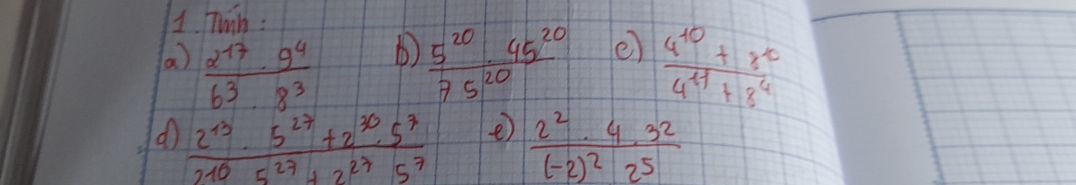 1. Tính :
a) \frac{2^{17} . 9^4}{6^3 . 8^3} b) \frac{5^{20} . 45^{20}}{75^{20}} c) \frac{4^{10} + 8^{10}}{4^{11} + 8^4}
d) \frac{2^{13} . 5^{27} + 2^{30} . 5^7}{2^{10} . 5^{27} + 2^{27} . 5^7} e) \frac{2^2 . 4 . 32}{(-2)^2 . 2^5}